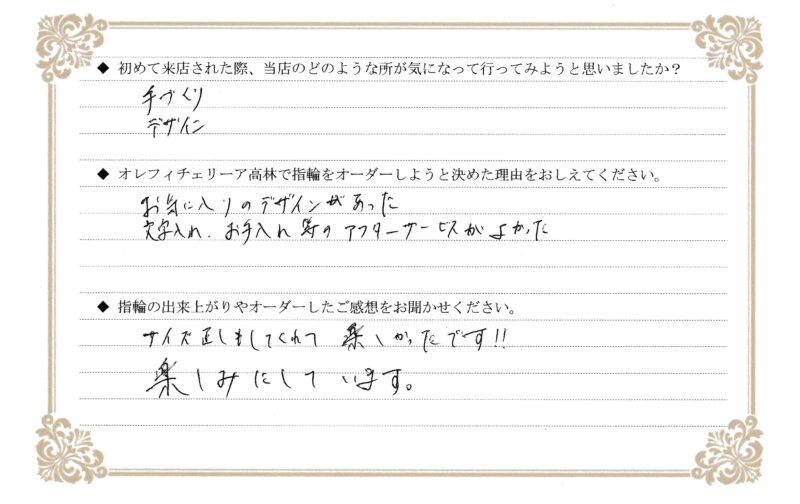 ◆ 初めて来店された際、当店のどのような所が気になって行ってみようと思いましたか？
手づくり
デザイン
◆ オレフィチェリーア高林で指輪をオーダーしようと決めた理由をおしえてください。
お気に入りのデザインがあった
文字入れ、お手入れ等のアフターサービスがよかった
◆ 指輪の出来上がりやオーダーしたご感想をお聞かせください。
サイズ直しもしてくれて 楽しかったです!!
楽しみにしています。